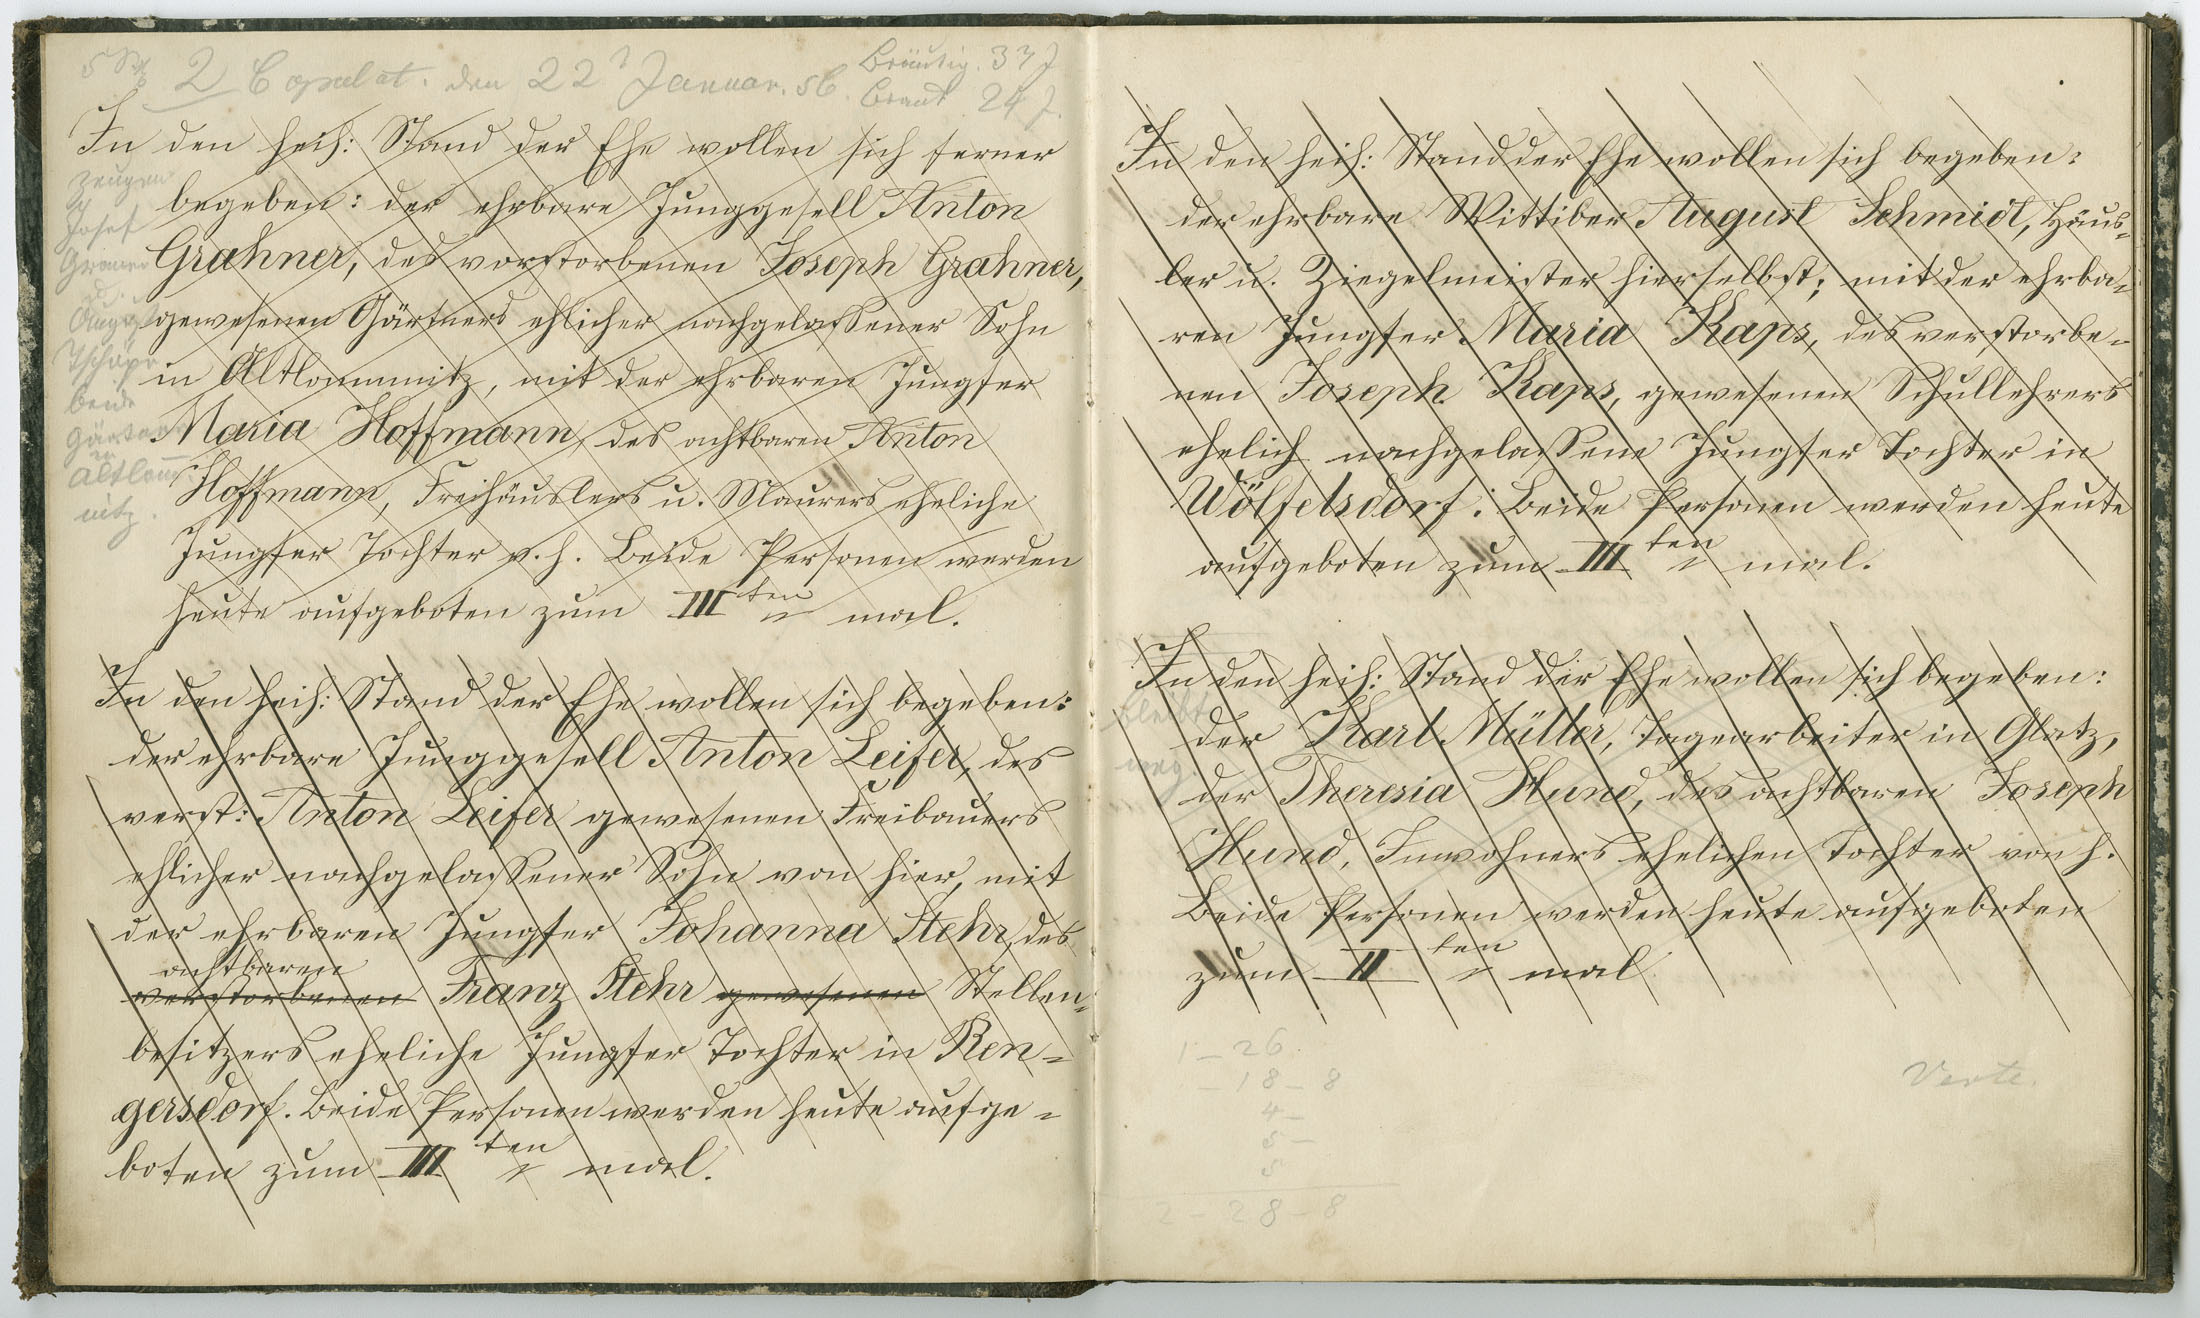 2 Copulat. den 22t Januar. 56. Bräutig. 33 J
Braut 24 J.
In den heih: Stand der Ehe wollen sich ferner
begeben: der ehrbare Junggesell Anton
Grahner, des verstorbenen Joseph Grahner,
gewesenen Gärtners ehlicher nachgelassener Sohn
in Altlommnitz, mit der ehrbaren Jungfer
Maria Hoffmann, des achtbaren Anton
Hoffmann, Freihäuslers u. Maurers eheliche
Jungfer Tochter v. h. Beide Personen werden
heute aufgeboten zum III ten mal.
Zeugen
Josef
August
Tschöpe
beide
Gärtner
in
Altlom̄
nitz.
In den heih: Stand der Ehe wollen sich begeben:
der ehrbare Junggesell Anton Leifer, des
verst: Anton Leifer gewesenen Freibauers
ehlicher nachgelassener Sohn von hier, mit
der ehrbaren Jungfer Johanna Stehr, des
achtbaren
verstorbenen Franz Stehr gewesenen Stellen=
besitzers eheliche Jungfer Tochter in Ren=
gersdorf. Beide Personen werden heute aufge=
boten zum III ten mal.
In den heih: Stand der Ehe wollen sich begeben:
der ehrbare Wittiber August Schmidt, Häus=
ler u. Ziegelmeister hierselbst; mit der ehrba=
ren Jungfer Maria Kaps, des verstorbe=
nen Joseph Kaps, gewesenen Schullehrers
ehelich nachgelassene Jungfer Tochter in
Wölfelsdorf. Beide Personen werden heute
aufgeboten zum III ten mal.
In den heih: Stand der Ehe wollen sich begeben:
der Karl Müller, Tagearbeiter in Glatz,
der Theresia Hund, des achtbaren Joseph
Hund, Inwohners ehelichen Tochter von h.
Beide Personen werden heute aufgeboten
zum II ten mal
bleibt
weg.
1 – 26
– 18 – 8
4 –
5 –
5
2 – 28 – 8
Verte.